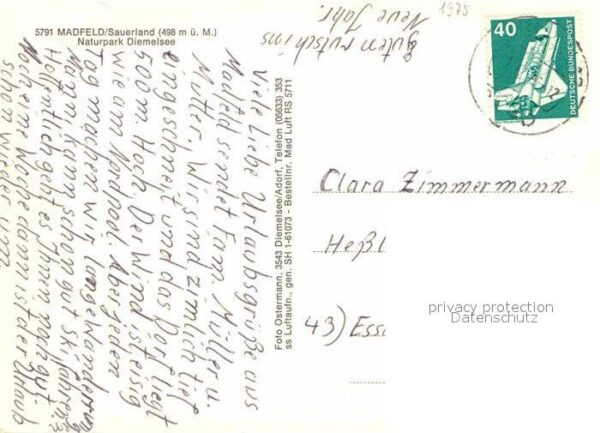 5791 MADFELD/Sauerland (498 m ü. M.)
Naturpark Diemelsee
1975
guten rutsch ins
Neue Jahr.
Viele liebe Urlaubsgrüße aus
Madfeld sendet Fam. Müller u.
Mutter, Wir sind zimlich tief
eingeschneit und das Dorf liegt
500 m. Hoch. Der Wind ist eisig
wie am Nordpool. Aber jeden
Tag machen wir lange Wanderung
Manz. kann schon gut Ski fahren.
Hoffentlich geht es Ihnen noch gut.
Noch eine Woche dann ist der Urlaub
schon wieder um
Foto Ostermann, 3543 Diemelsee/Adorf, Telefon (05633) 353
ss Luftaufn., gen. SH 1-61073 - Bestellnr. Mad Luft RS 5711
40
DEUTSCHE BUNDESPOST
Clara Zimmermann
Heßl
43) Esse
privacy protection
Datenschutz